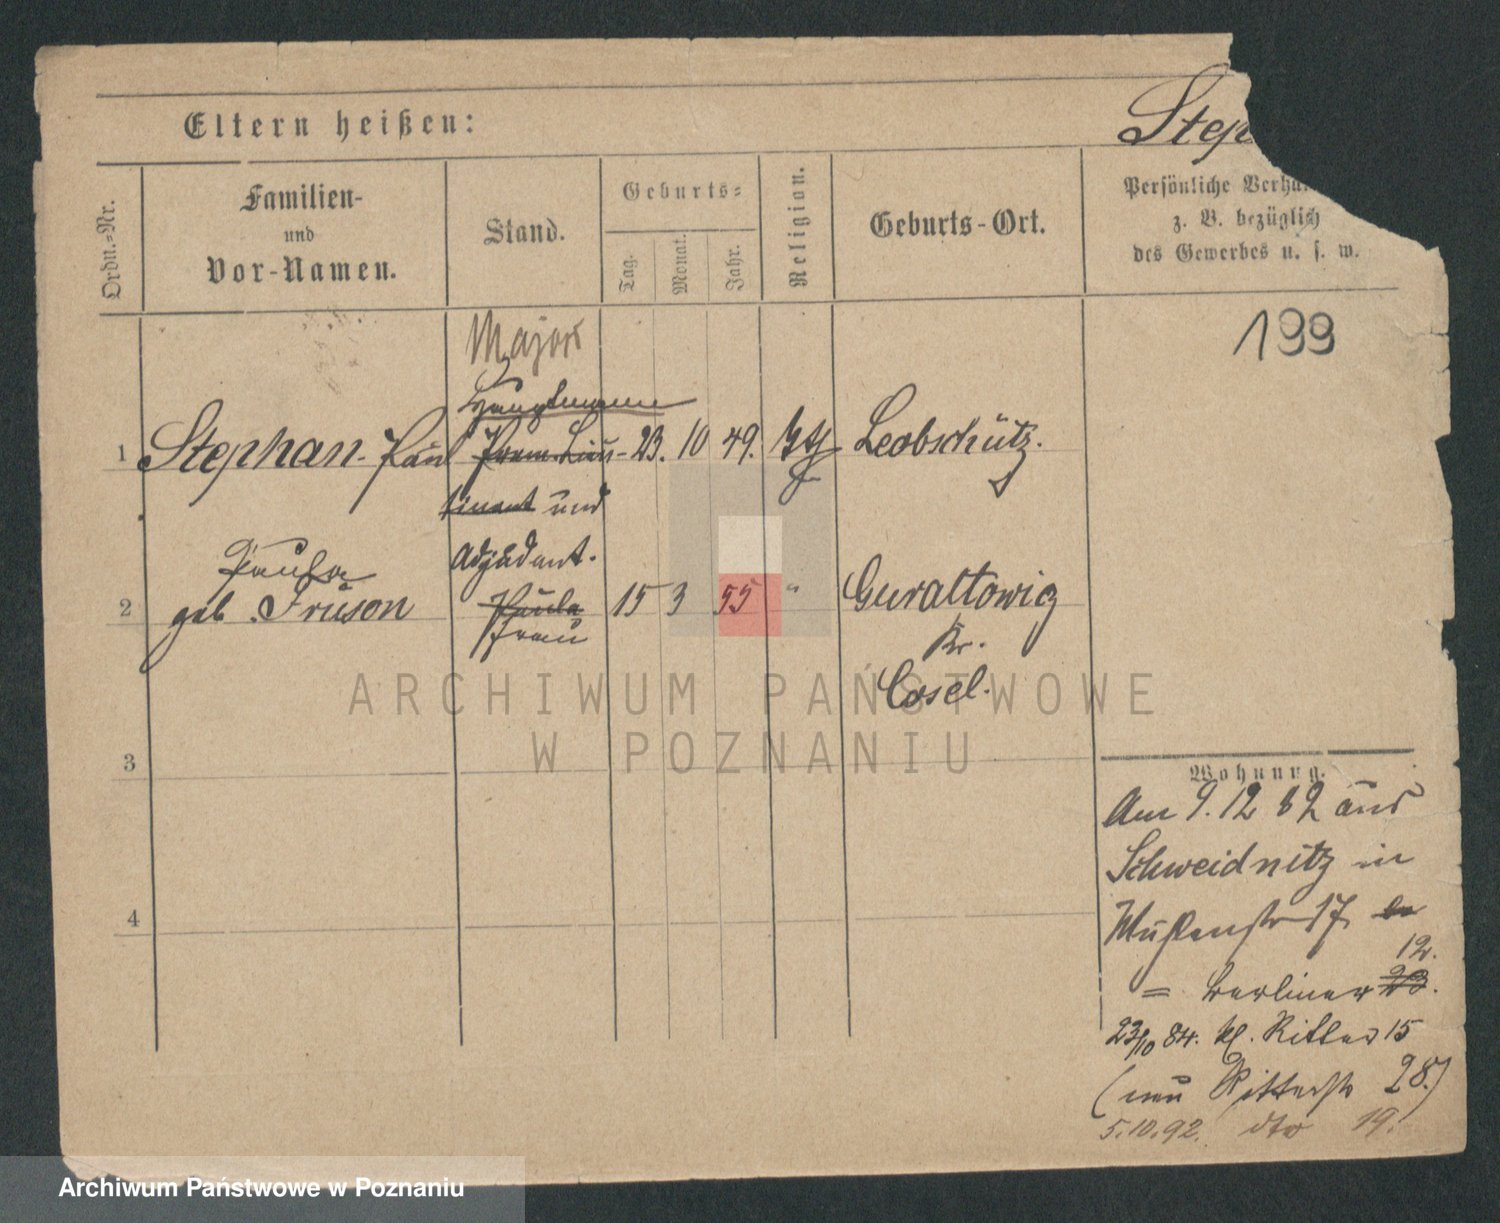 Eltern heißen:
Step
Ordn.=Nr.
Familien-
und
Vor-Namen.
Stand.
Geburts=
Tag.
Monat.
Jahr.
Religion.
Geburts-Ort.
Persönliche Verhä
z. B. bezüglich
des Gewerbes u. s. w.
199
Major
Hauptmann
1 Stephan Paul Prem. Lieu- 23. 10 49. Leobschütz.
tinant und
Adjudant.
Paula
2 geb. Fruson Paula 15 3 55 " Gurattowig
Frau
Kr.
Cosel.
3
4
Wohnung.
Am 9. 12 82 aus
Schweidnitz in
Mühlenstr 17
12.
= Berliner 23.
23/10 84. kl. Ritter 15
(neu Ritterstr 28.)
5.10.92. dto 19.
ARCHIWUM PAŃSTWOWE
W POZNANIU
Archiwum Państwowe w Poznaniu